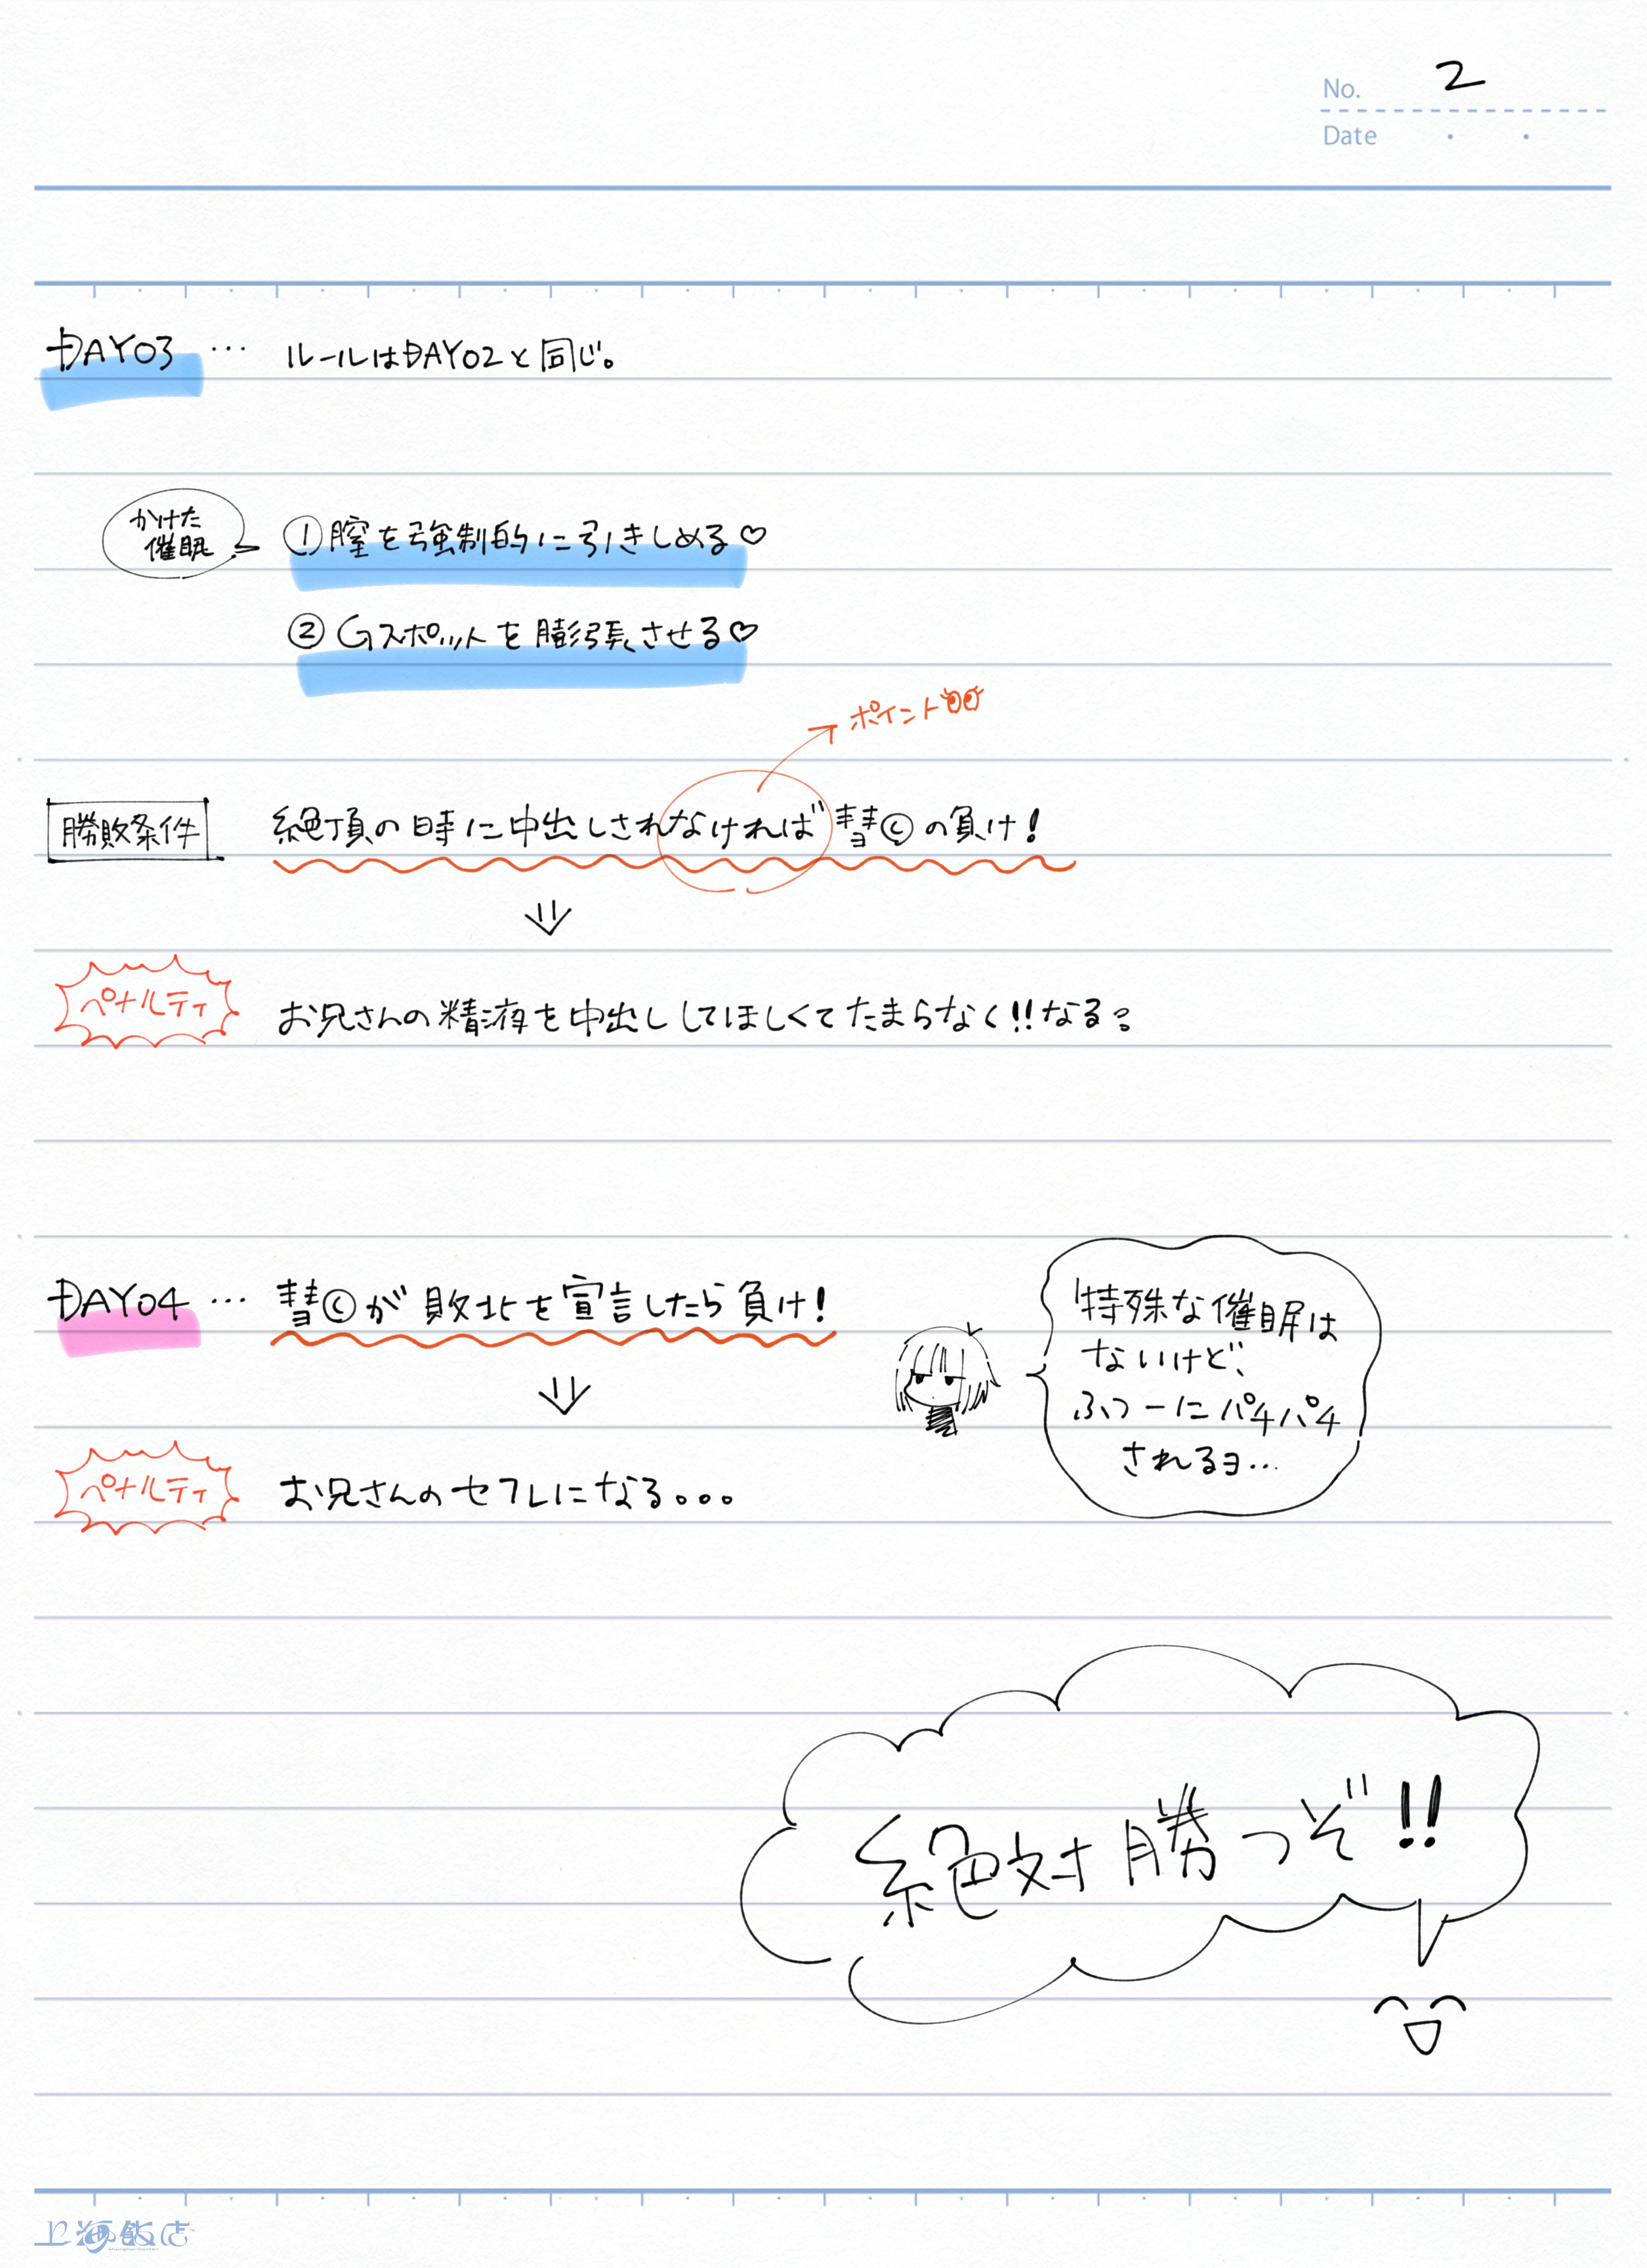 No. 2
Date
DAY03 … ルールはDAY02と同じ。
かけた
催眠
①膣を強制的に引きしめる♡
②Gスポットを膨張させる♡
ポイント
勝敗条件 絶頂の時に中出しされなければ彗©の負け!
ペナルティ お兄さんの精液を中出ししてほしくてたまらなく!!なる?
DAY04 … 彗©が敗北を宣言したら負け!
特殊な催眠は
ないけど、
ふつーにパチパチ
されるヨ…
ペナルティ お兄さんのセフレになる。。。
絶対勝つぞ!!
上海飯店